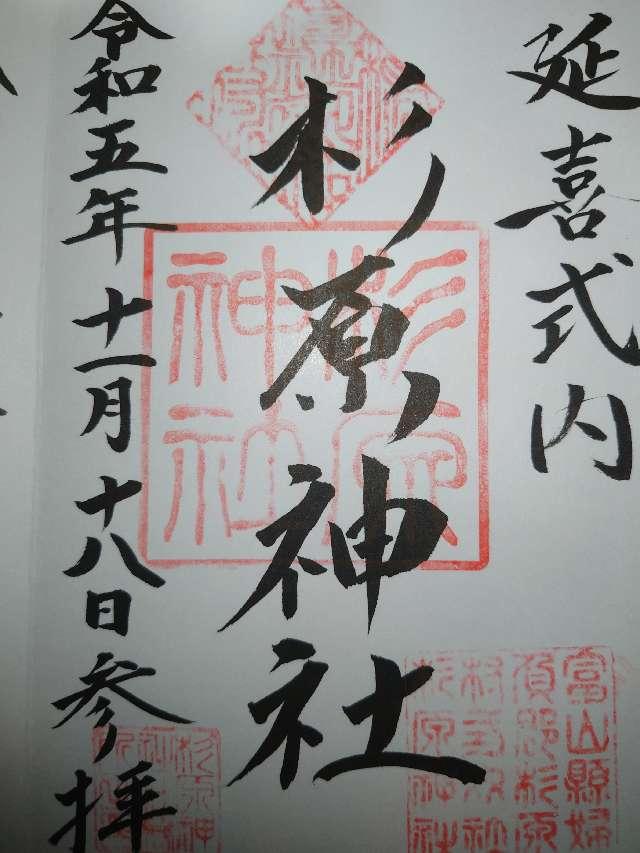 延喜式内
杉原神社
令和五年十一月十八日参拝
杉原
神社
富山縣婦
負郡杉原